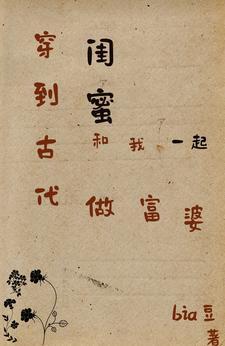 穿到古代
闺蜜
和我一起
做富婆
bia豆
著